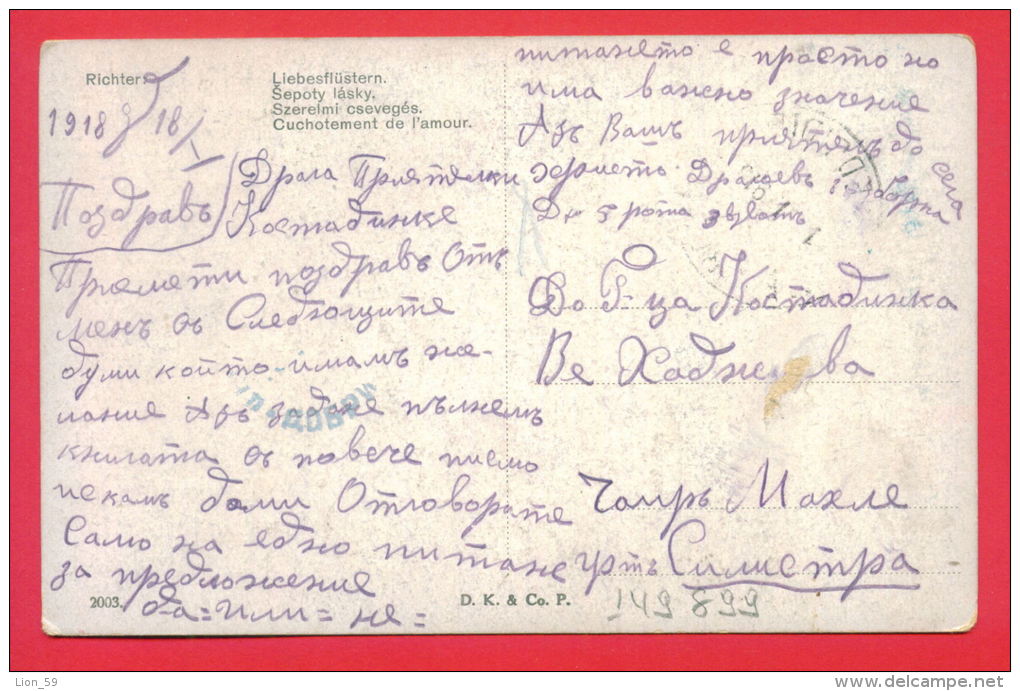 Richter:
Liebesflüstern.
Šepoty lásky.
Szerelmi csevegés.
Cuchotement de l'amour.
1918 18/I
Поздравъ
Драга Приятелки
Костадинке
Приемети поздравъ Отъ
менъ съ Следующите
думи който имамъ же-
лание Азъ
книгата съ повече писмо
искамъ дами Отговорате
Само на едно питане
за предложение
да = или = не =
питането е просто но
има важно значение
Азъ Вашъ приятель до сега
Христо Дракаевъ
5 рота 3 взводъ
До Г-ца Костадинка
Ве Хаджиева
Чаиръ Махле
Силистра
ДОБРИ
2003.
D. K. & Co. P.
149899
Lion_59
delcampe.net